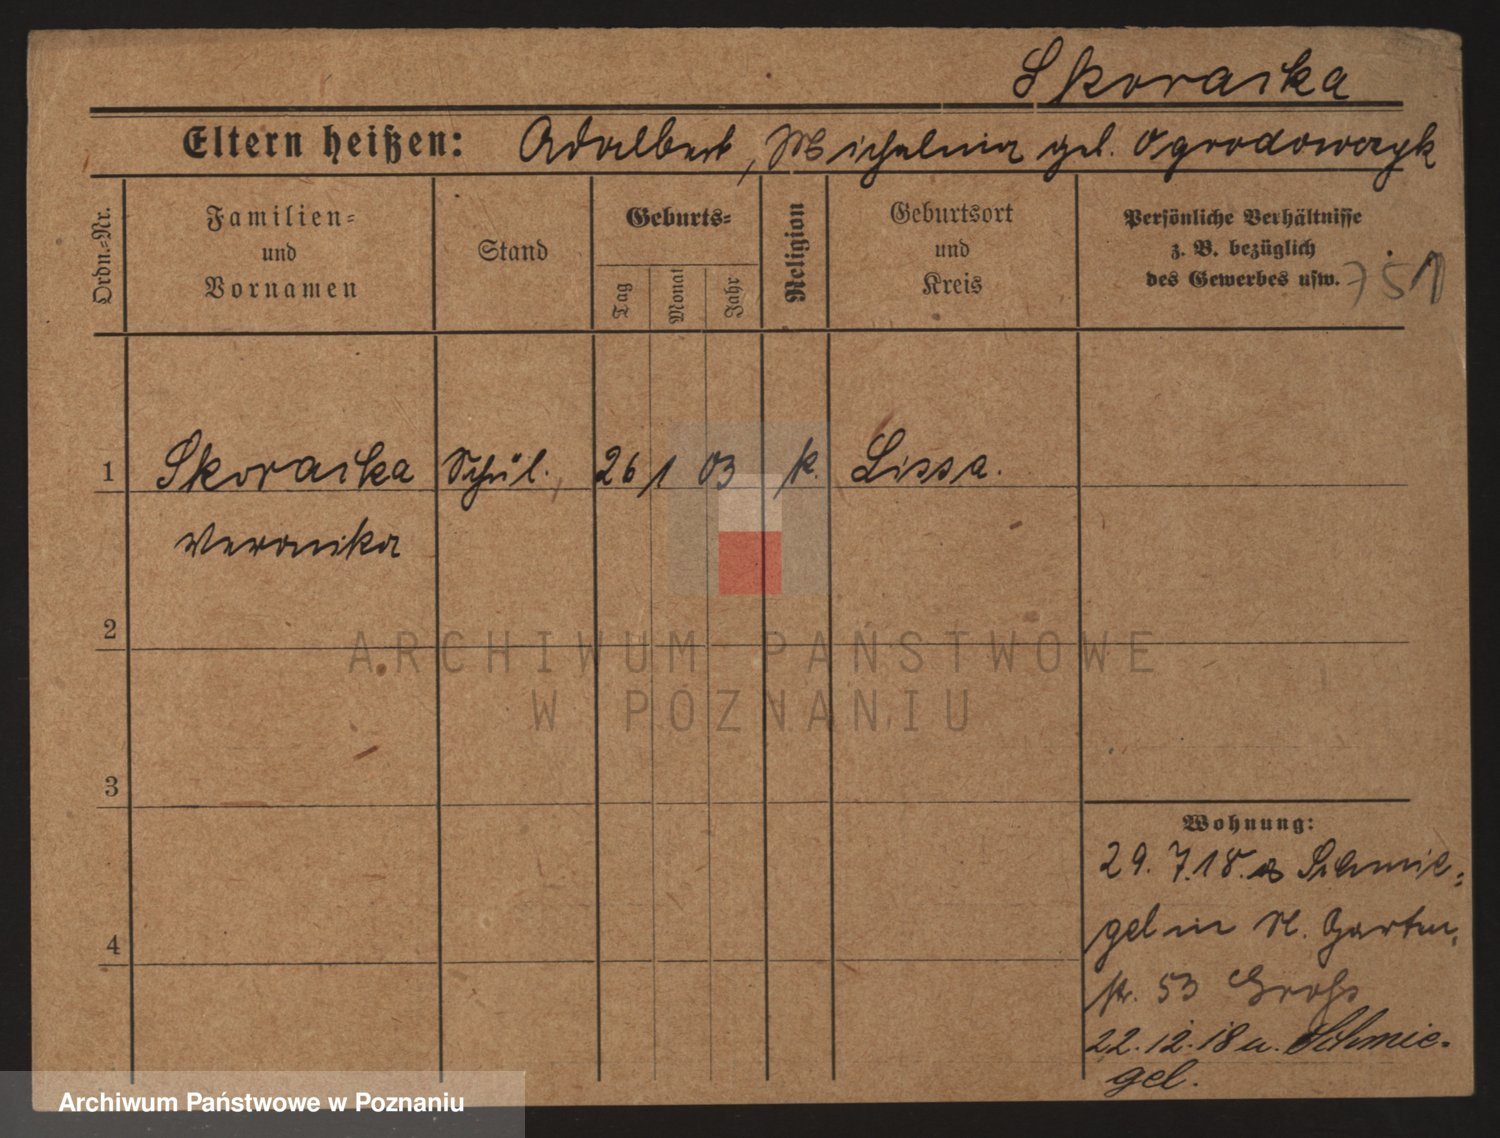 Skoraika
Eltern heißen: Adalbert, Michalina geb. Ogrodowczyk
Ordn.=Nr.
Familien=
und
Vornamen
Stand
Geburts=
Tag
Monat
Jahr
Religion
Geburtsort
und
Kreis
Persönliche Verhältnisse
z. B. bezüglich
des Gewerbes usw.
751
1 Skoraika Schül. 26 1 03 k. Lissa.
Veronika
2
3
4
Wohnung:
29. 7.18. Schmie=
gel in Garten,
str. 53 Groß
22.12.18 a. Schmie-
gel.
ARCHIWUM PAŃSTWOWE
W POZNANIU
Archiwum Państwowe w Poznaniu